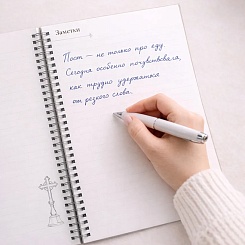 Заметки
Пост — не только про еду.
Сегодня особенно почувствовала,
как трудно удержаться
от резкого слова.